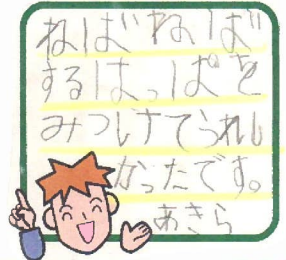 ねばねば
するはっぱを
みつけてうれし
かったです。
あきら